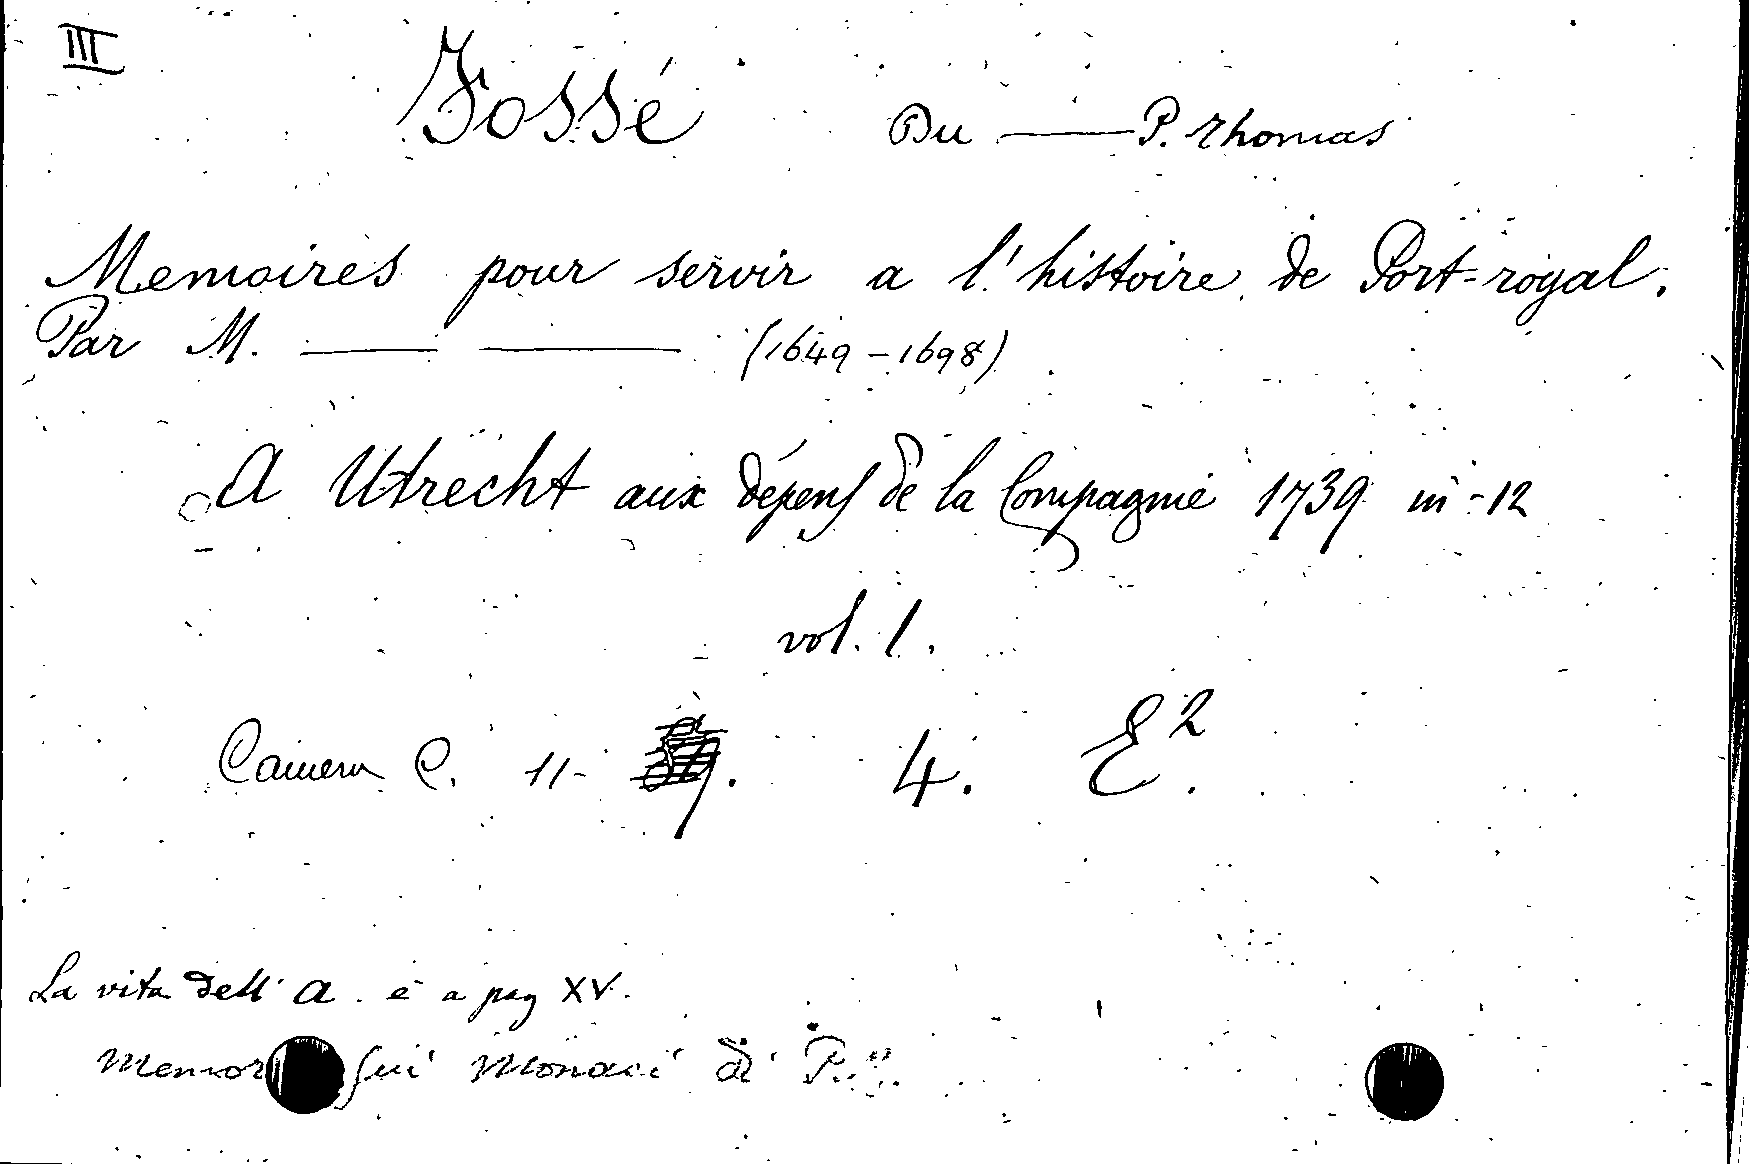 III
Fossé Du —— P. Thomas
Memoires pour servir a l'histoire de Port-royal.
Par M. —— —— (1649-1698)
A Utrecht aux dépens de la Compagnie 1739 in-12
vol. 1.
Camera C. 11- 4. E².
La vita dell' A. è a pag XV.
Memor sui Monaci di P.